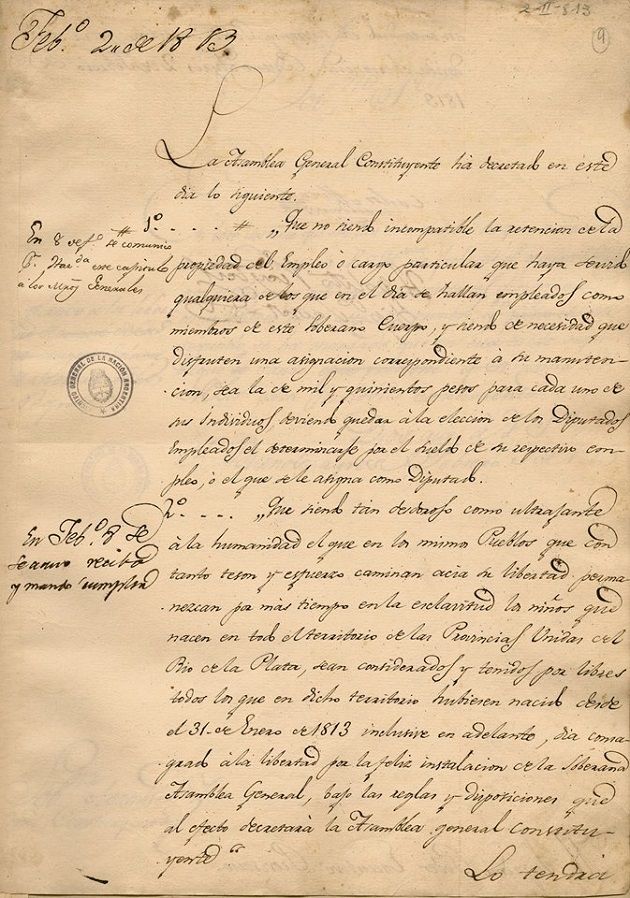 2-II-813
9
Feb.º 2 de 1813.
La Asamblea General Constituyente ha decretado en este
dia lo siguiente.
1º. - - - - # „Que no siendo incompatible la retencion de la
propiedad del Empleo ó cargo particular que haya servido
qualquiera de los que en el dia se hallan empleados como
miembros de este Soberano Cuerpo, y siendo de necesidad que
disfruten una asignacion correspondiente à su manuten-
cion, sea la de mil y quinientos pesos para cada uno de
sus Individuos deviendo quedar à la eleccion de los Diputados
Empleados el determinarse por el sueldo de su respectivo em-
pleo, ó el que se le asigna como Diputado.
2º. - - - - „Que siendo tan desdoroso como ultrajante
à la humanidad el que en los mismos Pueblos que con
tanto teson y esfuerzo caminan acia su libertad perma-
nezcan por mas tiempo en la esclavitud los niños que
nacen en todo el territorio de las Provincias Unidas del
Rio de la Plata, sean considerados y tenidos por libres
todos los que en dicho territorio hubiesen nacido desde
el 31 de Enero de 1813 inclusive en adelante, dia consa-
grado à la libertad por la feliz instalacion de la Soberana
Asamblea General, bajo las reglas y disposiciones que
al efecto decretarà la Asamblea general constitu-
yente
Lo tendrá
En 8 de comunico
este capitulo
a los Generales
ARCHIVO GENERAL DE LA NACIÓN ARGENTINA
En Feb.º 8 se
recibo
y mando cumplido